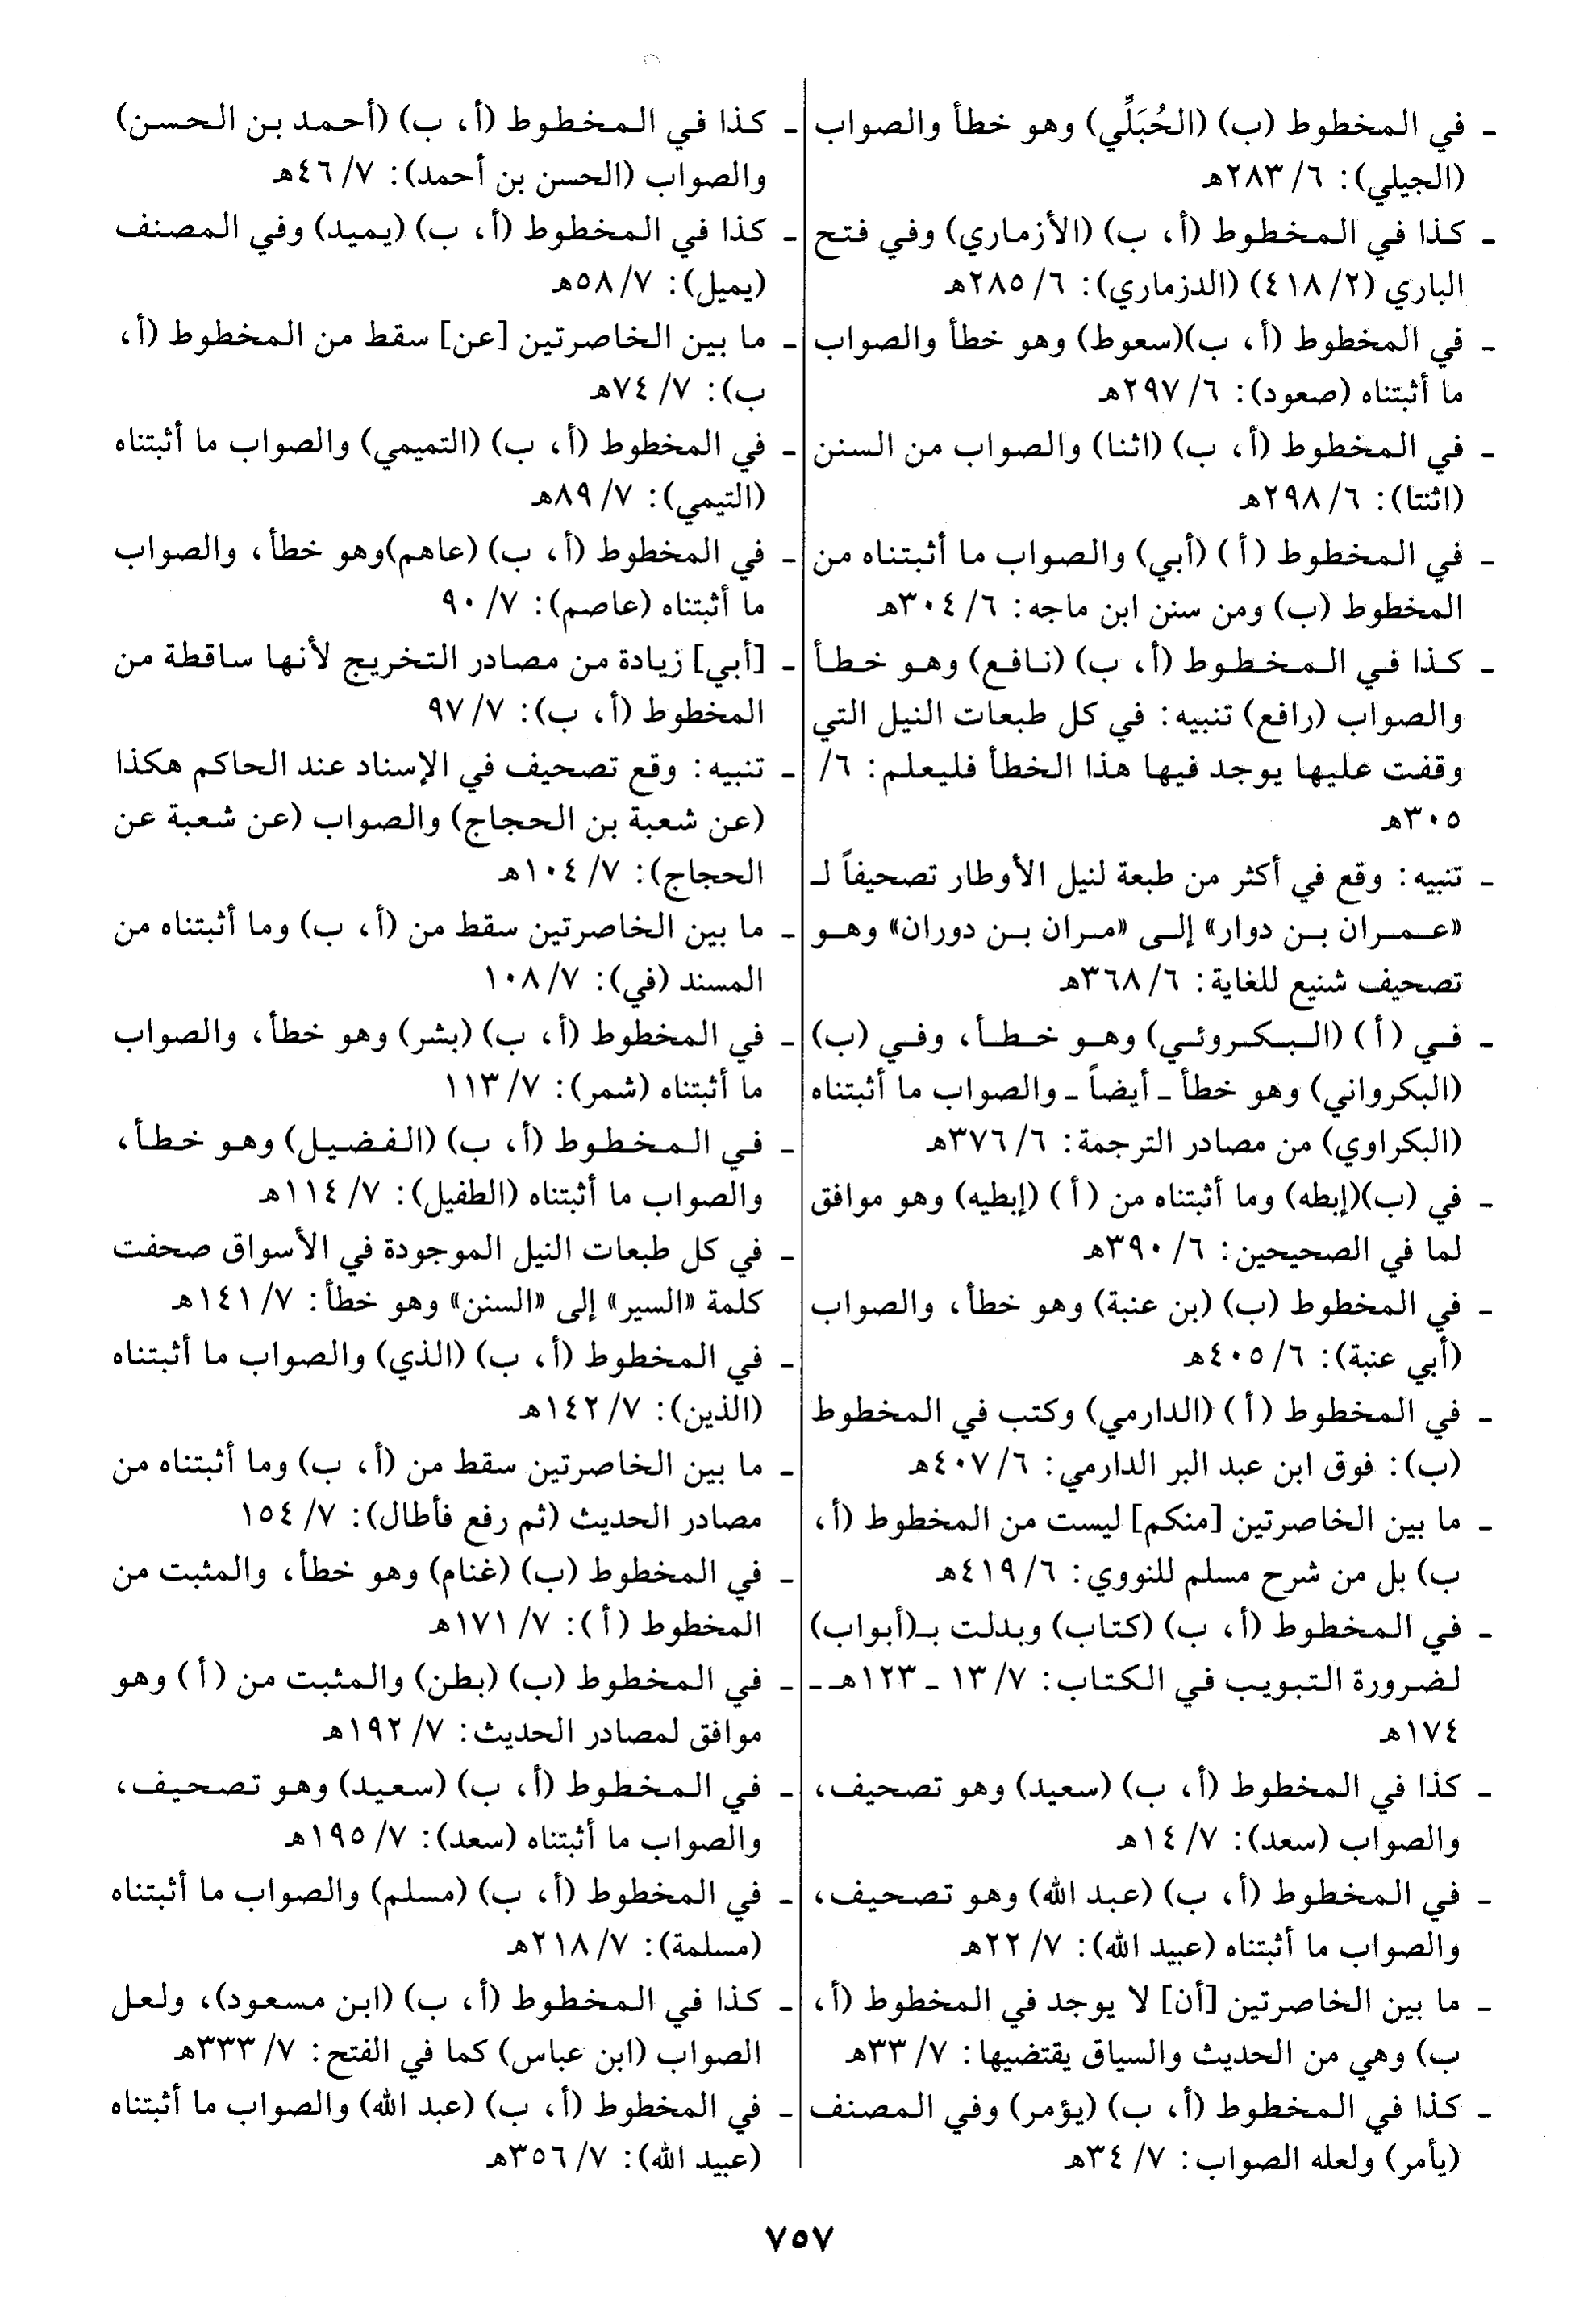 - في المخطوط (ب) (الحُبَلِّي) وهو خطأ والصواب
(الجيلي): ٦/ ٢٨٣هـ
- كذا في المخطوط (أ، ب) (الأزماري) وفي فتح
الباري (٢/ ٤١٨) (الدزماري): ٦/ ٢٨٥هـ
- في المخطوط (أ، ب)(سعوط) وهو خطأ والصواب
ما أثبتناه (صعود): ٦/ ٢٩٧هـ
- في المخطوط (أ، ب) (اثنا) والصواب من السنن
(اثنتا): ٦/ ٢٩٨هـ
- في المخطوط (أ) (أبي) والصواب ما أثبتناه من
المخطوط (ب) ومن سنن ابن ماجه: ٦/ ٣٠٤هـ
- كذا في المخطوط (أ، ب) (نافع) وهو خطأ
والصواب (رافع) تنبيه: في كل طبعات النيل التي
وقفت عليها يوجد فيها هذا الخطأ فليعلم: ٦/
٣٠٥هـ
- تنبيه: وقع في أكثر من طبعة لنيل الأوطار تصحيفاً لـ
«عمران بن دوار» إلى «مران بن دوران» وهو
تصحيف شنيع للغاية: ٦/ ٣٦٨هـ
- في (أ) (البكروئي) وهو خطأ، وفي (ب)
(البكرواني) وهو خطأ - أيضاً - والصواب ما أثبتناه
(البكراوي) من مصادر الترجمة: ٦/ ٣٧٦هـ
- في (ب)(إبطه) وما أثبتناه من (أ) (إبطيه) وهو موافق
لما في الصحيحين: ٦/ ٣٩٠هـ
- في المخطوط (ب) (بن عنبة) وهو خطأ، والصواب
(أبي عنبة): ٦/ ٤٠٥هـ
- في المخطوط (أ) (الدارمي) وكتب في المخطوط
(ب): فوق ابن عبد البر الدارمي: ٦/ ٤٠٧هـ
- ما بين الخاصرتين [منكم] ليست من المخطوط (أ،
ب) بل من شرح مسلم للنووي: ٦/ ٤١٩هـ
- في المخطوط (أ، ب) (كتاب) وبدلت بـ(أبواب)
لضرورة التبويب في الكتاب: ٧/ ١٣ - ١٢٣هـ -
١٧٤هـ
- كذا في المخطوط (أ، ب) (سعيد) وهو تصحيف،
والصواب (سعد): ٧/ ١٤هـ
- في المخطوط (أ، ب) (عبد الله) وهو تصحيف،
والصواب ما أثبتناه (عبيد الله): ٧/ ٢٢هـ
- ما بين الخاصرتين [أن] لا يوجد في المخطوط (أ،
ب) وهي من الحديث والسياق يقتضيها: ٧/ ٣٣هـ
- كذا في المخطوط (أ، ب) (يؤمر) وفي المصنف
(يأمر) ولعله الصواب: ٧/ ٣٤هـ
- كذا في المخطوط (أ، ب) (أحمد بن الحسن)
والصواب (الحسن بن أحمد): ٧/ ٤٦هـ
- كذا في المخطوط (أ، ب) (يميد) وفي المصنف
(يميل): ٧/ ٥٨هـ
- ما بين الخاصرتين [عن] سقط من المخطوط (أ،
ب): ٧/ ٧٤هـ
- في المخطوط (أ، ب) (التميمي) والصواب ما أثبتناه
(التيمي): ٧/ ٨٩هـ
- في المخطوط (أ، ب) (عاهم)وهو خطأ، والصواب
ما أثبتناه (عاصم): ٧/ ٩٠
- [أبي] زيادة من مصادر التخريج لأنها ساقطة من
المخطوط (أ، ب): ٧/ ٩٧
- تنبيه: وقع تصحيف في الإسناد عند الحاكم هكذا
(عن شعبة بن الحجاج) والصواب (عن شعبة عن
الحجاج): ٧/ ١٠٤هـ
- ما بين الخاصرتين سقط من (أ، ب) وما أثبتناه من
المسند (في): ٧/ ١٠٨
- في المخطوط (أ، ب) (بشر) وهو خطأ، والصواب
ما أثبتناه (شمر): ٧/ ١١٣
- في المخطوط (أ، ب) (الفضيل) وهو خطأ،
والصواب ما أثبتناه (الطفيل): ٧/ ١١٤هـ
- في كل طبعات النيل الموجودة في الأسواق صحفت
كلمة «السير» إلى «السنن» وهو خطأ: ٧/ ١٤١هـ
- في المخطوط (أ، ب) (الذي) والصواب ما أثبتناه
(الذين): ٧/ ١٤٢هـ
- ما بين الخاصرتين سقط من (أ، ب) وما أثبتناه من
مصادر الحديث (ثم رفع فأطال): ٧/ ١٥٤
- في المخطوط (ب) (غنام) وهو خطأ، والمثبت من
المخطوط (أ): ٧/ ١٧١هـ
- في المخطوط (ب) (بطن) والمثبت من (أ) وهو
موافق لمصادر الحديث: ٧/ ١٩٢هـ
- في المخطوط (أ، ب) (سعيد) وهو تصحيف،
والصواب ما أثبتناه (سعد): ٧/ ١٩٥هـ
- في المخطوط (أ، ب) (مسلم) والصواب ما أثبتناه
(مسلمة): ٧/ ٢١٨هـ
- كذا في المخطوط (أ، ب) (ابن مسعود)، ولعل
الصواب (ابن عباس) كما في الفتح: ٧/ ٣٣٣هـ
- في المخطوط (أ، ب) (عبد الله) والصواب ما أثبتناه
(عبيد الله): ٧/ ٣٥٦هـ
٧٥٧